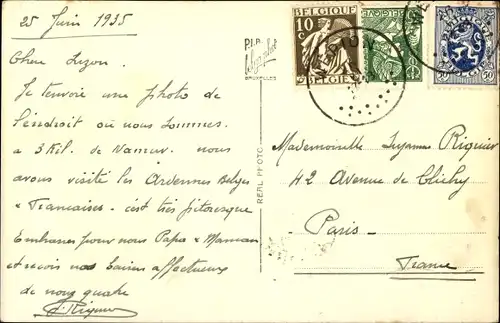 25 Juin 1935
Chere Suzon.
Je t'envoie une photo de
l'endroit où nous sommes
a 3 Kil. de Namur. nous
avons visité les Ardennes Belges
& Francaises. c'est très pitoresque
Embrasses pour nous Papa & Maman
et reçois nos baisers affectueux
de nous quatre
Riquier
P.I.B.
BRUXELLES
REAL PHOTO
BELGIQUE
10 c
BELGIE
BELGIQUE
BELGIE
50 50
Mademoiselle Suzanne Riquier
42 Avenue de Clichy
Paris
France